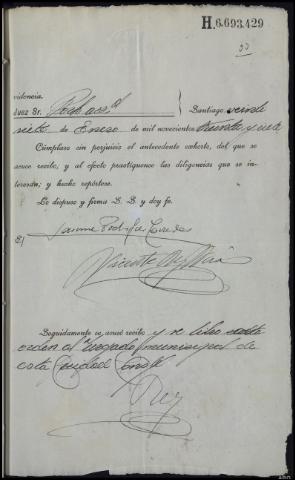 H.6.693.429
videncia
Juez Sr.
Santiago veinte
siete de Enero de mil novecientos treinta y siete
Cúmplase sin perjuicio el antecedente exhorto, del que se
acuse recibo, y al efecto practíquense las diligencias que se in-
teresan; y hecho repórtese.
Lo dispuso y firma S. S. y doy fe.
Seguidamente se acusó recibo y se libró
orden al Juzgado municipal de
esta Ciudad doy fe
Rey